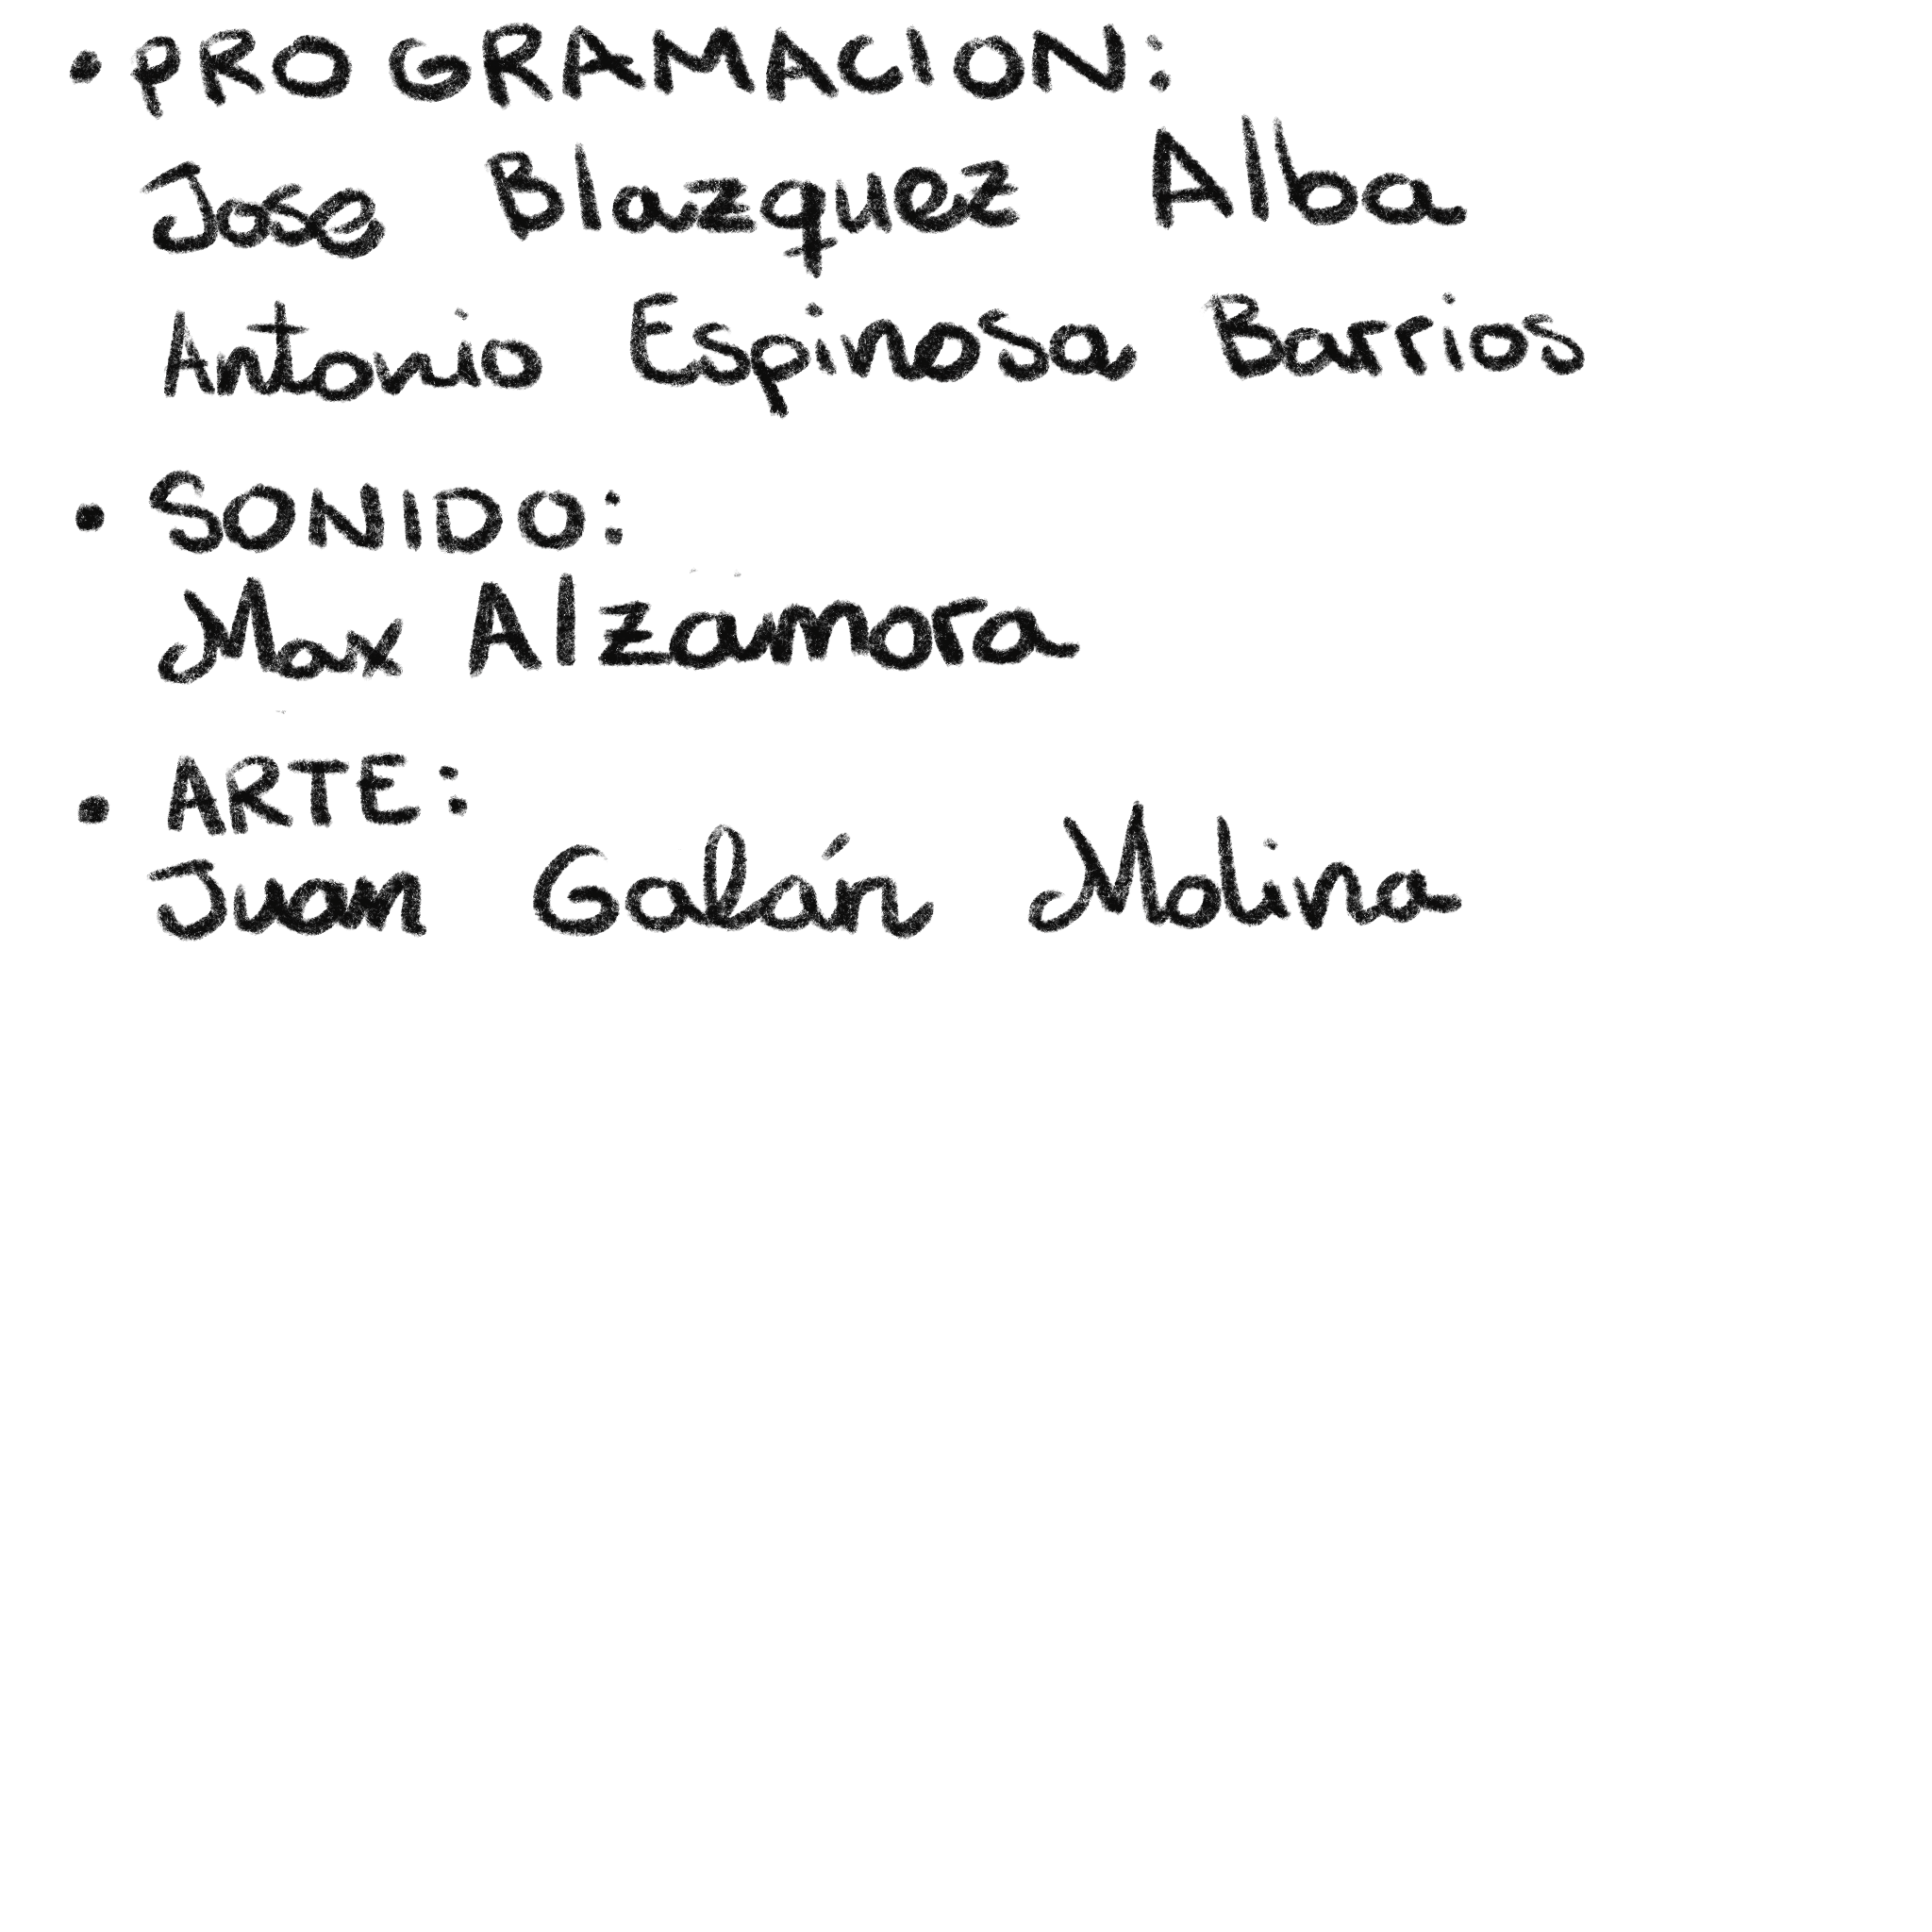 • PROGRAMACION:
Jose Blazquez Alba
Antonio Espinosa Barrios
• SONIDO:
Max Alzamora
• ARTE:
Juan Galán Molina